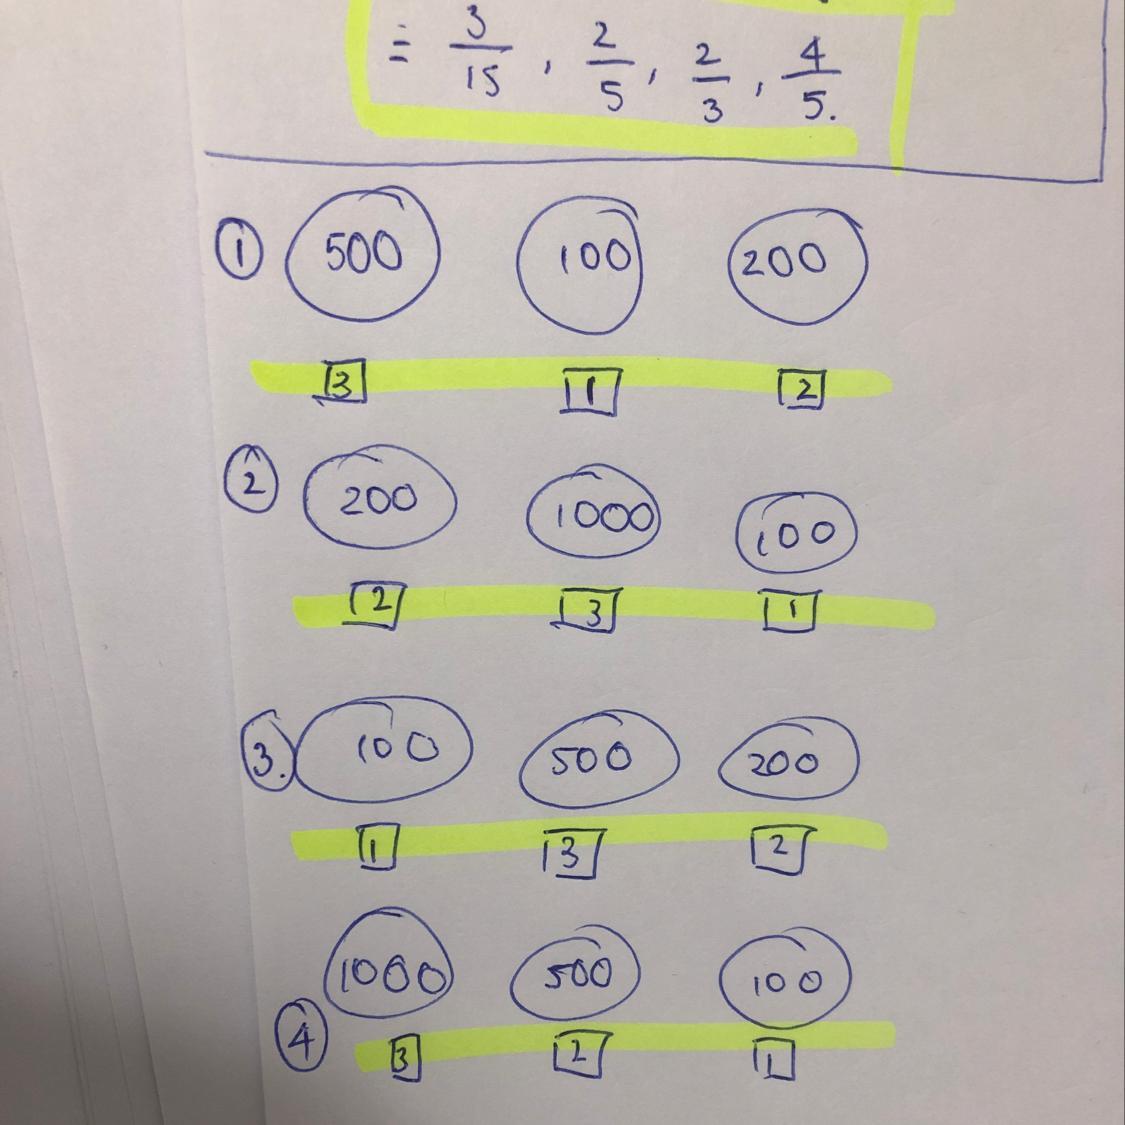 = 3/15 , 2/5 , 2/3 , 4/5.
1 500 100 200
3 1 2
2 200 1000 100
2 3 1
3. 100 500 200
1 3 2
1000 500 100
4 3 2 1